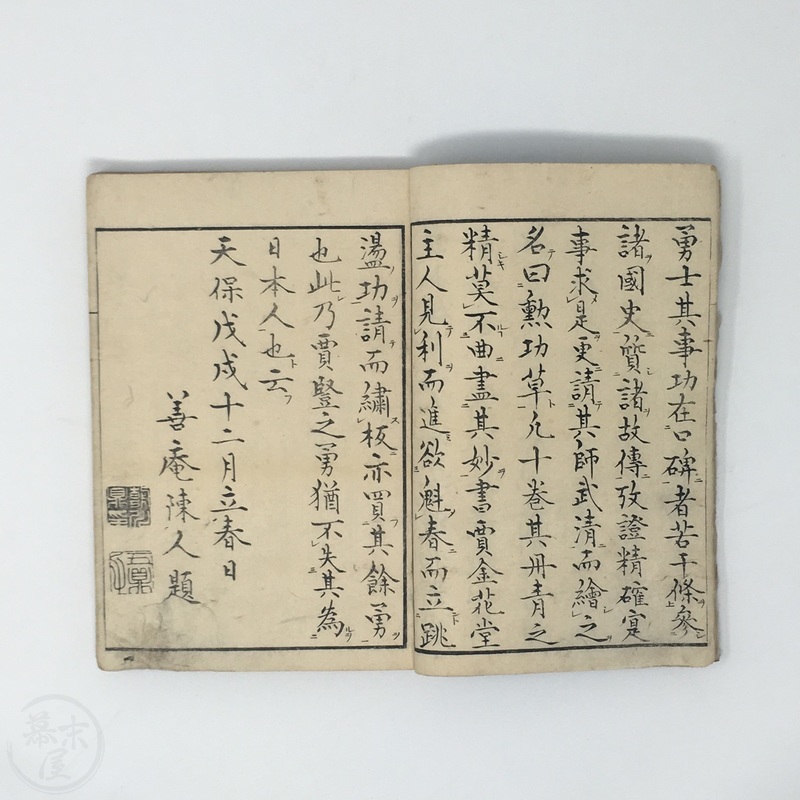 勇士其事功在口碑者若干條参
諸國史質諸故傳攷證精確寔
事求是更請其師武清而繪之
名曰勲功草凡十巻其丹青之
精莫不曲盡其妙書賈金花堂
主人見利而進欲魁春而立跳
盪功請而繍板亦買其餘勇
也此乃賈豎之勇猶不失其為
日本人也云
天保戊戌十二月立春日
善庵陳人題
幕末屋